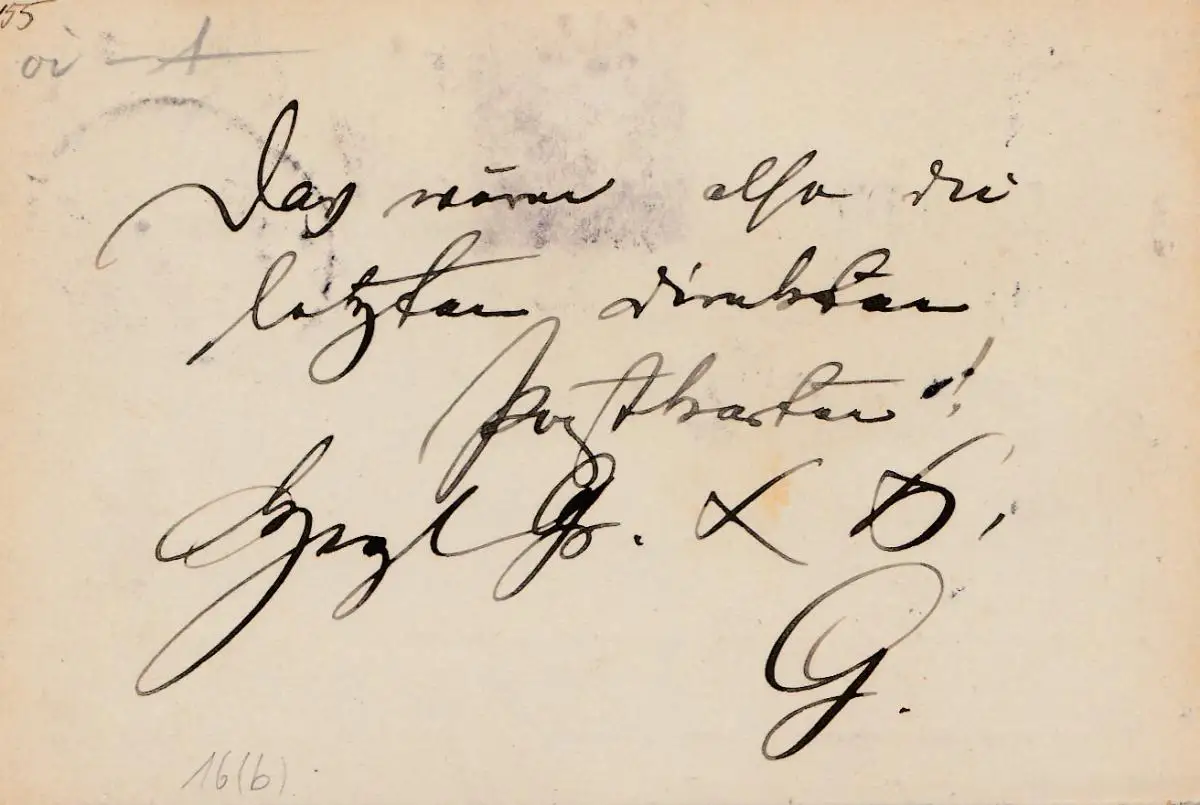 155
Das wären also die
letzten direkten
Postkarten!
Herzl Gr. & K.
G.
16(b)